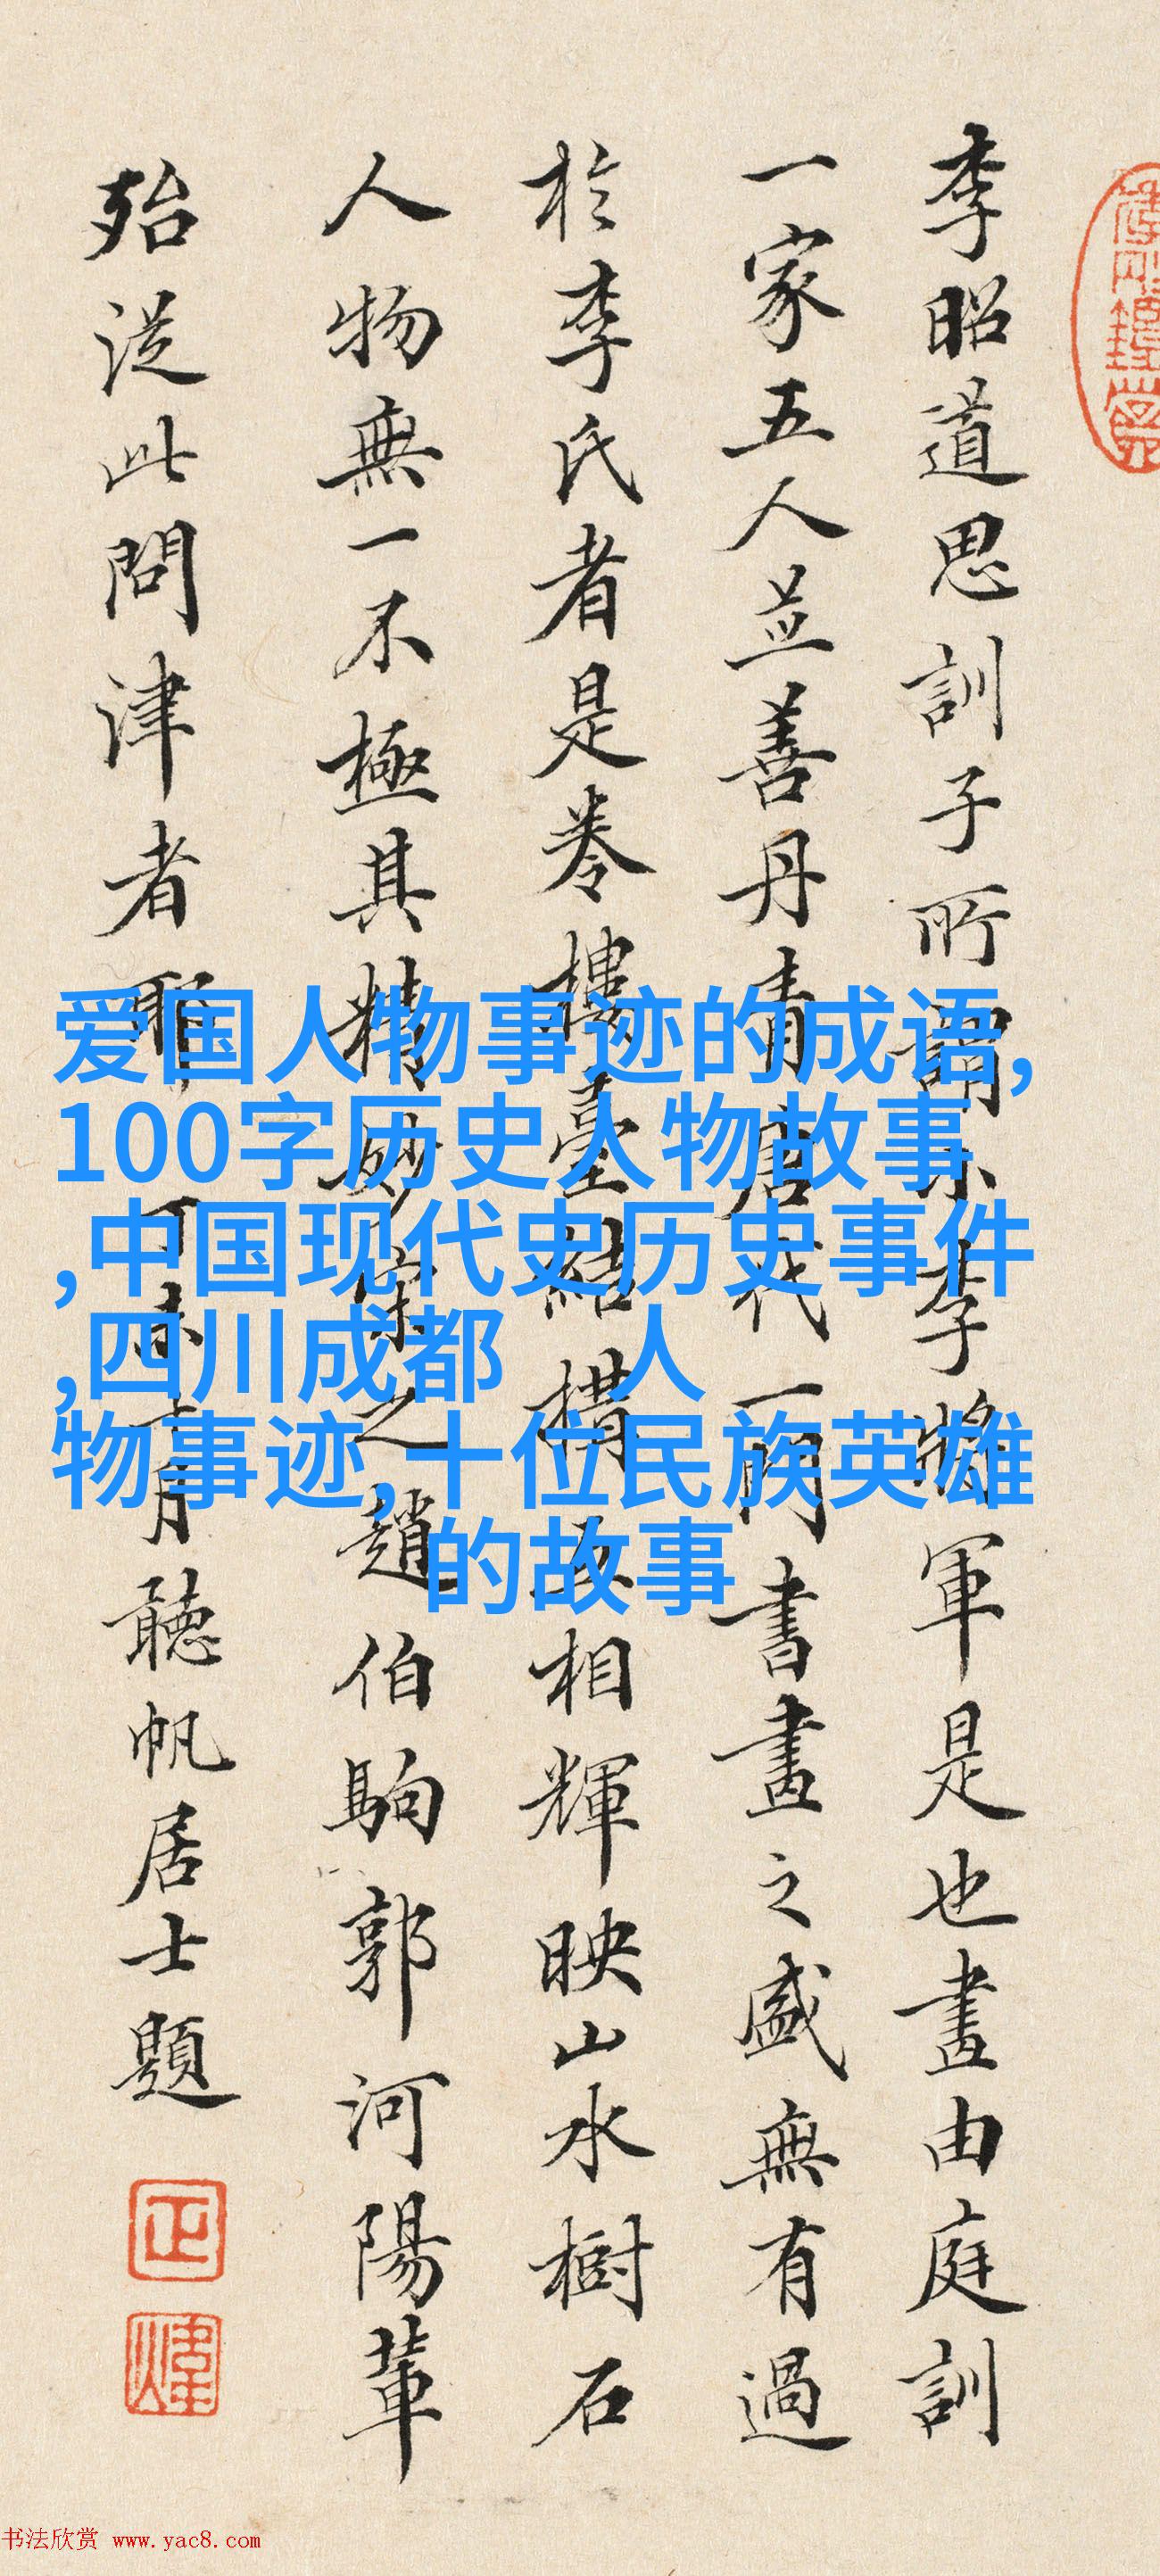 李昭道思訓子所謂小李將軍是也畫由庭訓
一家五人並善丹青唐代一門書畫之盛無有過
於李氏者是卷樓臺結構互相輝映山水樹石
人物無一不極其精妙宋之趙伯駒郭河陽輩
殆從此問津者耶丁未十月聽帆居士題
正
煒
爱国人物事迹的成语,
100字历史人物故事
,中国现代史历史事件
,四川成都 人
物事迹,十位民族英雄
的故事
书法欣赏 www.yac8.com